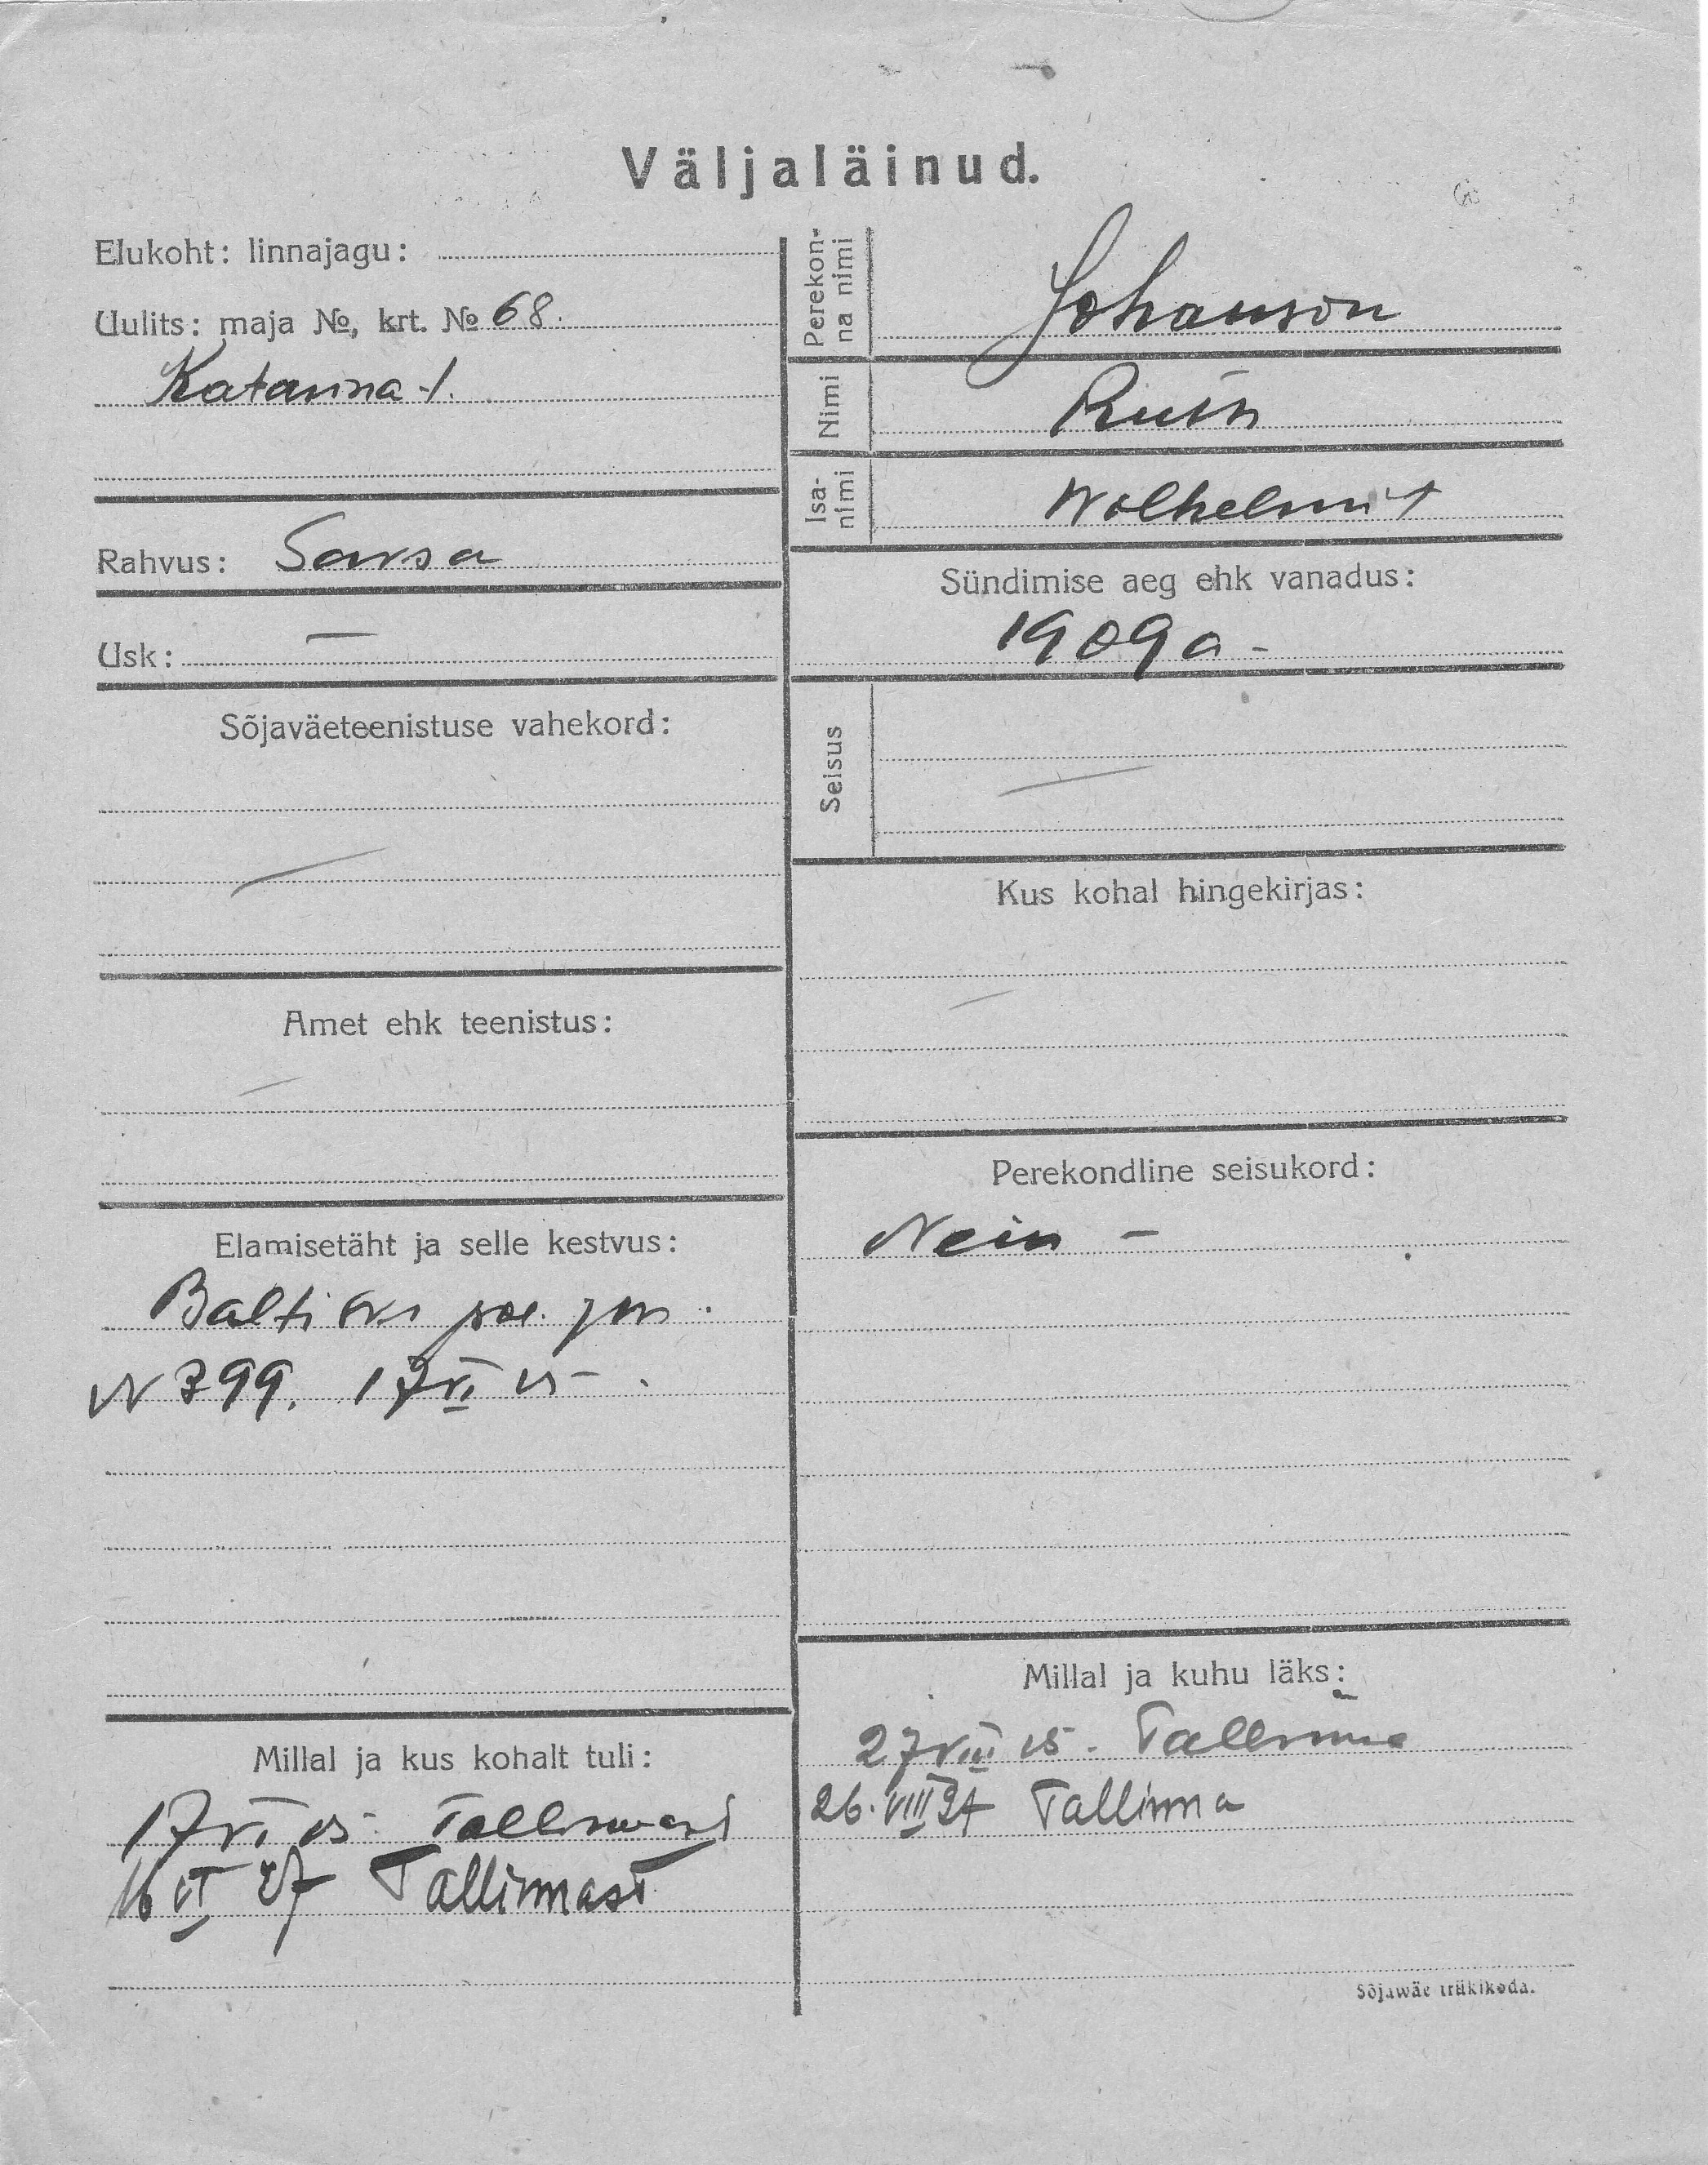 Väljaläinud.
Elukoht: linnajagu:
Uulits: maja №, krt. № 68.
Katarina 1.
Rahvus: Saksa
Usk: —
Sõjaväeteenistuse vahekord:
Amet ehk teenistus:
Elamisetäht ja selle kestvus:
Baltiski jsk. jsk.
N 399. 17 VI 25.
Millal ja kus kohalt tuli:
17 VI 25 Tallinnast
16 VI 27 Tallinnast
Perekonna nimi
Johanson
Nimi
Ruth
Isanimi
Sündimise aeg ehk vanadus:
1909 a -
Seisus
Kus kohal hingekirjas:
Perekondline seisukord:
Nein -
Millal ja kuhu läks:
27 VIII 25. Tallinna
26. VIII 27 Tallinna
Sõjawäe trükikoda.